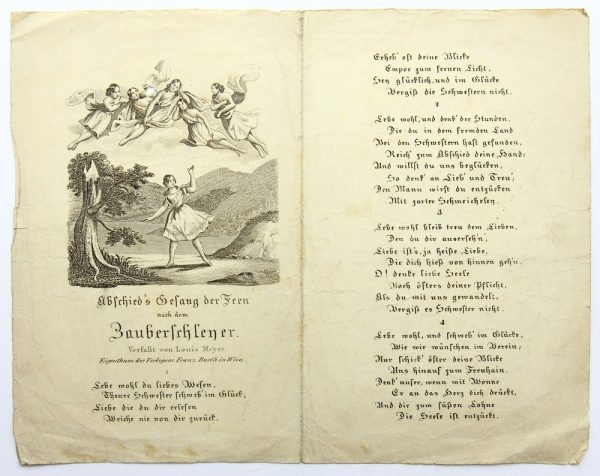 Abschied's Gesang der Feen
nach dem
Zauberschleyer.
Verfaßt von Louis Meyer.
Eigenthum des Verlegers Franz Barth in Wien.
1
Lebe wohl du liebes Wesen,
Theure Schwester schweb' im Glück;
Liebe die du dir erlesen
Weiche nie von dir zurück.
Erheb' oft deine Blicke
Empor zum fernen Licht,
Sey glücklich, und im Glücke
Vergiß die Schwestern nicht.
2
Lebe wohl, und denk' der Stunden,
Die du in dem fremden Land
Bei den Schwestern hast gefunden,
Reich' zum Abschied deine Hand;
Und willst du uns beglücken,
So denk' an Lieb' und Treu',
Den Mann wirst du entzücken
Mit zarter Schmeicheley.
3
Lebe wohl bleib treu dem Lieben,
Den du dir auserseh'n;
Liebe ist's, ja heiße Liebe,
Die dich hieß von hinnen geh'n.
O! denke liebe Seele
Noch öfters deiner Pflicht,
Als du mit uns gewandelt;
Vergiß es Schwester nicht.
4
Lebe wohl, und schweb' im Glücke,
Wie wir wünschen im Verein;
Nur schick' öfter deine Blicke
Uns hinauf zum Feenhain.
Denk' unser, wenn mit Wonne
Er an das Herz dich drückt,
Und dir zum süßen Lohne
Die Seele ist entzückt.